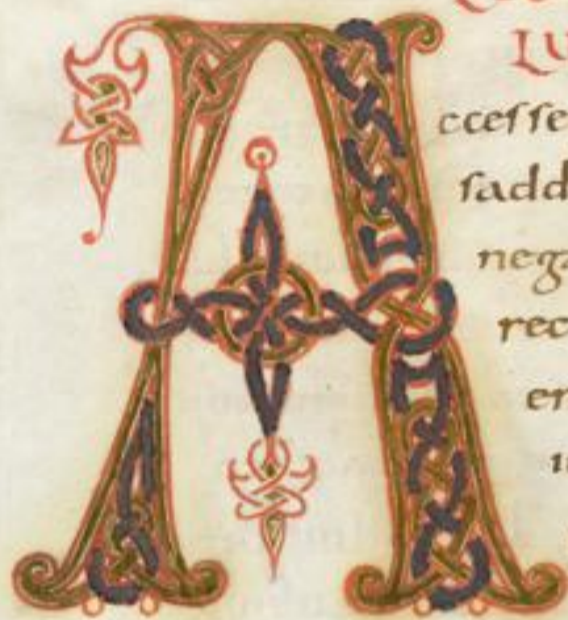 A
LU
ccesse
sadd
nega
rec
en